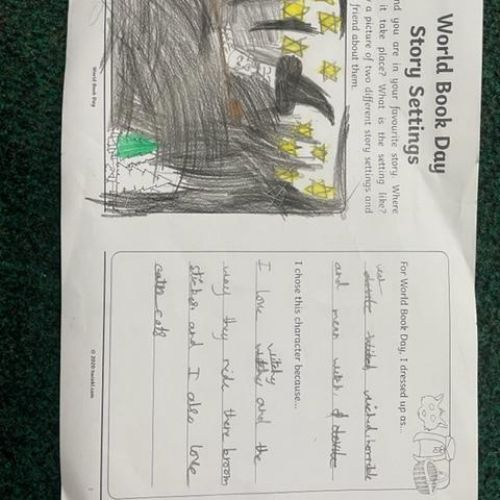 World Book Day
Story Settings
nd you are in your favourite story. Where
it take place? What is the setting like?
a picture of two different story settings and
friend about them.
World Book Day
For World Book Day, I dressed up as...
wicked, horrible
and mean witch
I chose this character because...
witchy
I love and the
way they ride there broom
sticks, and I also love
cats
© 2020 twinkl.com